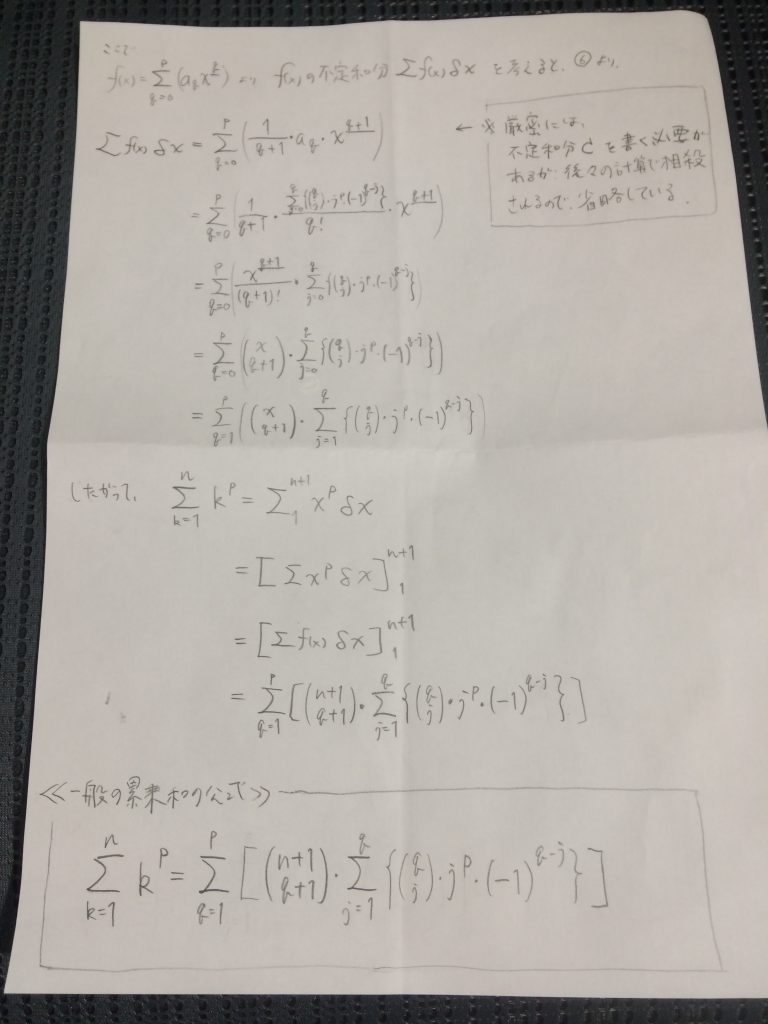 ここで
f(x)=∑_{q=0}^{p}(a_q x^{\underline{q}}) より f(x)の不定和分 ∑f(x)δx を考えると、⑥より、
∑f(x)δx = ∑_{q=0}^{p}(1/(q+1)・a_q・x^{\underline{q+1}})
← ※ 厳密には、
不定和分Cを書く必要が
あるが、後々の計算で相殺
されるので、省略している。
= ∑_{q=0}^{p}(1/(q+1)・∑_{j=0}^{q}{(q j)・j^p・(-1)^{q-j}}/q!・x^{\underline{q+1}})
= ∑_{q=0}^{p}(x^{\underline{q+1}}/(q+1)!・∑_{j=0}^{q}{(q j)・j^p・(-1)^{q-j}})
= ∑_{q=0}^{p}((x q+1)・∑_{j=0}^{q}{(q j)・j^p・(-1)^{q-j}})
= ∑_{q=1}^{p}((x q+1)・∑_{j=1}^{q}{(q j)・j^p・(-1)^{q-j}})
したがって、 ∑_{k=1}^{n} k^p = ∑_{1}^{n+1} x^p δx
= [∑x^p δx]_{1}^{n+1}
= [∑f(x)δx]_{1}^{n+1}
= ∑_{q=1}^{p}[(n+1 q+1)・∑_{j=1}^{q}{(q j)・j^p・(-1)^{q-j}}]
≪一般の累乗和の公式≫
∑_{k=1}^{n} k^p = ∑_{q=1}^{p}[(n+1 q+1)・∑_{j=1}^{q}{(q j)・j^p・(-1)^{q-j}}]